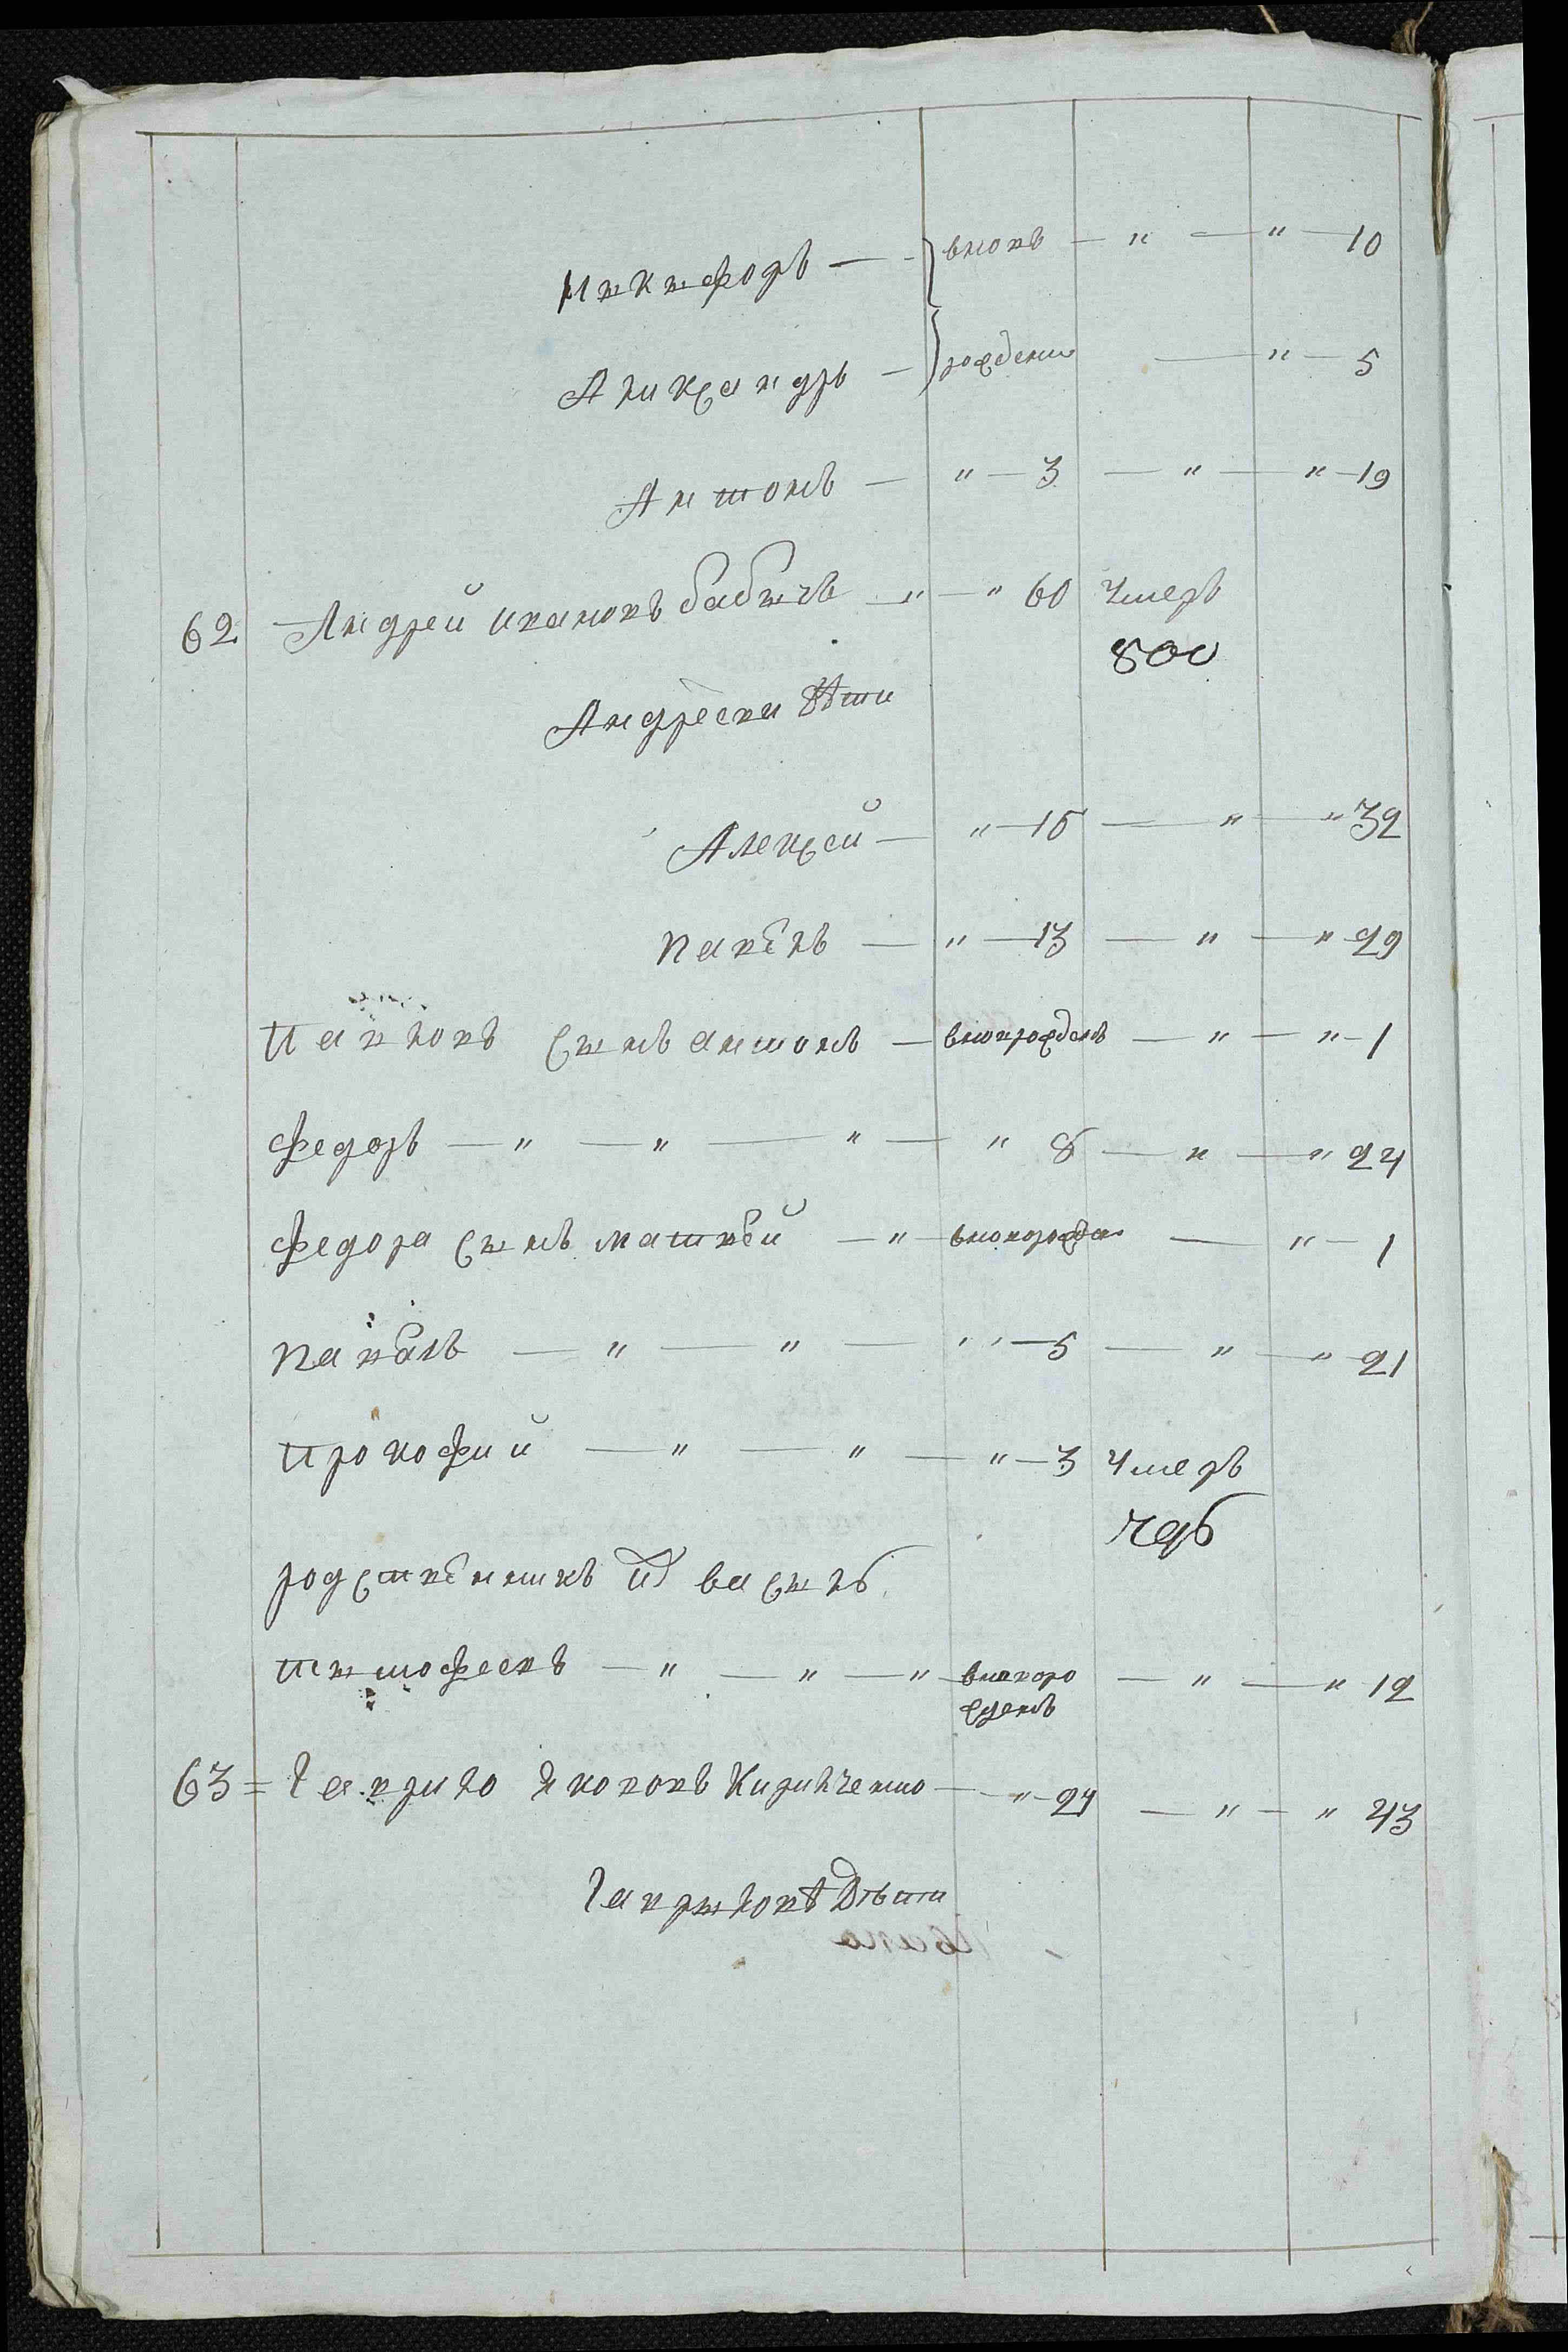 Никифоръ — вновь — " — " — 10
Аликсандръ — рождены — " — 5
Антонъ — " — 3 — " — " — 19
62 Андрей Ивановъ бабычъ — " — " 60 Умеръ
800
Андреевы дѣти
Алексей — " — 15 — " — " 32
Павелъ — " — 13 — " — " 29
Павловъ сынъ антонъ — вновьрожденъ — " — " — 1
Федоръ — " — " — " — " 8 — " — " 24
Федора сынъ матвей — " — вноворожден — " — 1
Павелъ — " — " — " — 5 — " — " 21
Прокофий — " — " — " — 3 Умеръ
родственникъ его василь
тимофеевъ — " — " — " вновьро — " — " 12
жденъ
63 = Гаврило Якововъ Кириличенко — " — 24 — " — " 43
Гавриловы Дѣти